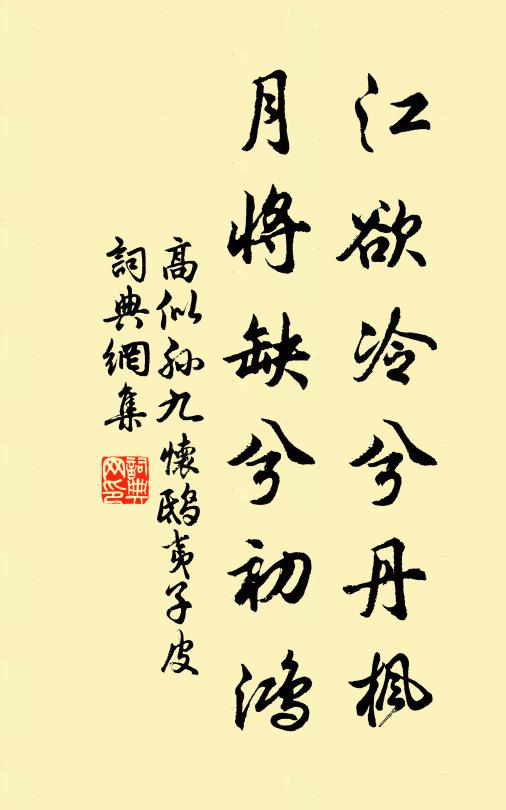 江欲冷兮丹枫
月将缺兮初鸿
高似孙九懷鴟夷子皮
詞典網集
詞典网印